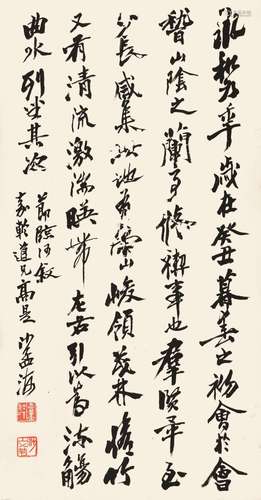 永和九年歲在癸丑暮春之初會於會
稽山陰之蘭亭脩禊事也羣賢畢至
少長咸集此地有崇山峻領茂林脩竹
又有清流激湍暎帶左右引以為流觴
曲水列坐其次
節臨河敘
道兄 沙孟海